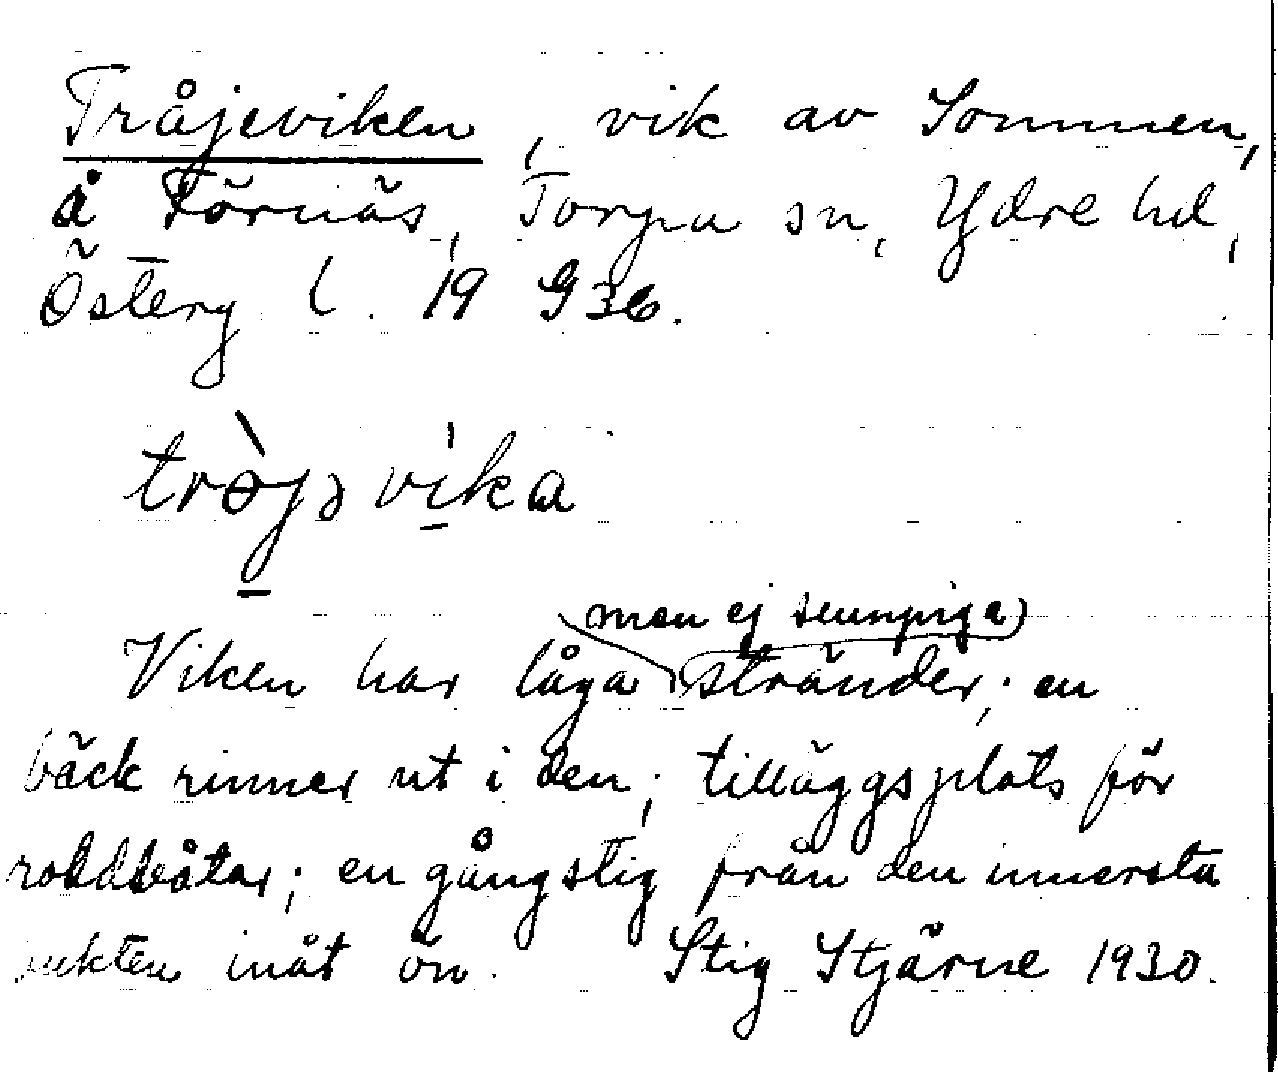 Tråjeviken, vik av Sommen,
å Törnäs, Torpa sn, Ydre hd,
Österg l. 19 G 36.
trɵ̀jə víka
men ej sumpiga
Viken har låga stränder; en
bäck rinner ut i den; tilläggsplats för
roddbåtar; en gångstig från den innersta
bukten inåt ön. Stig Stjärne 1930.